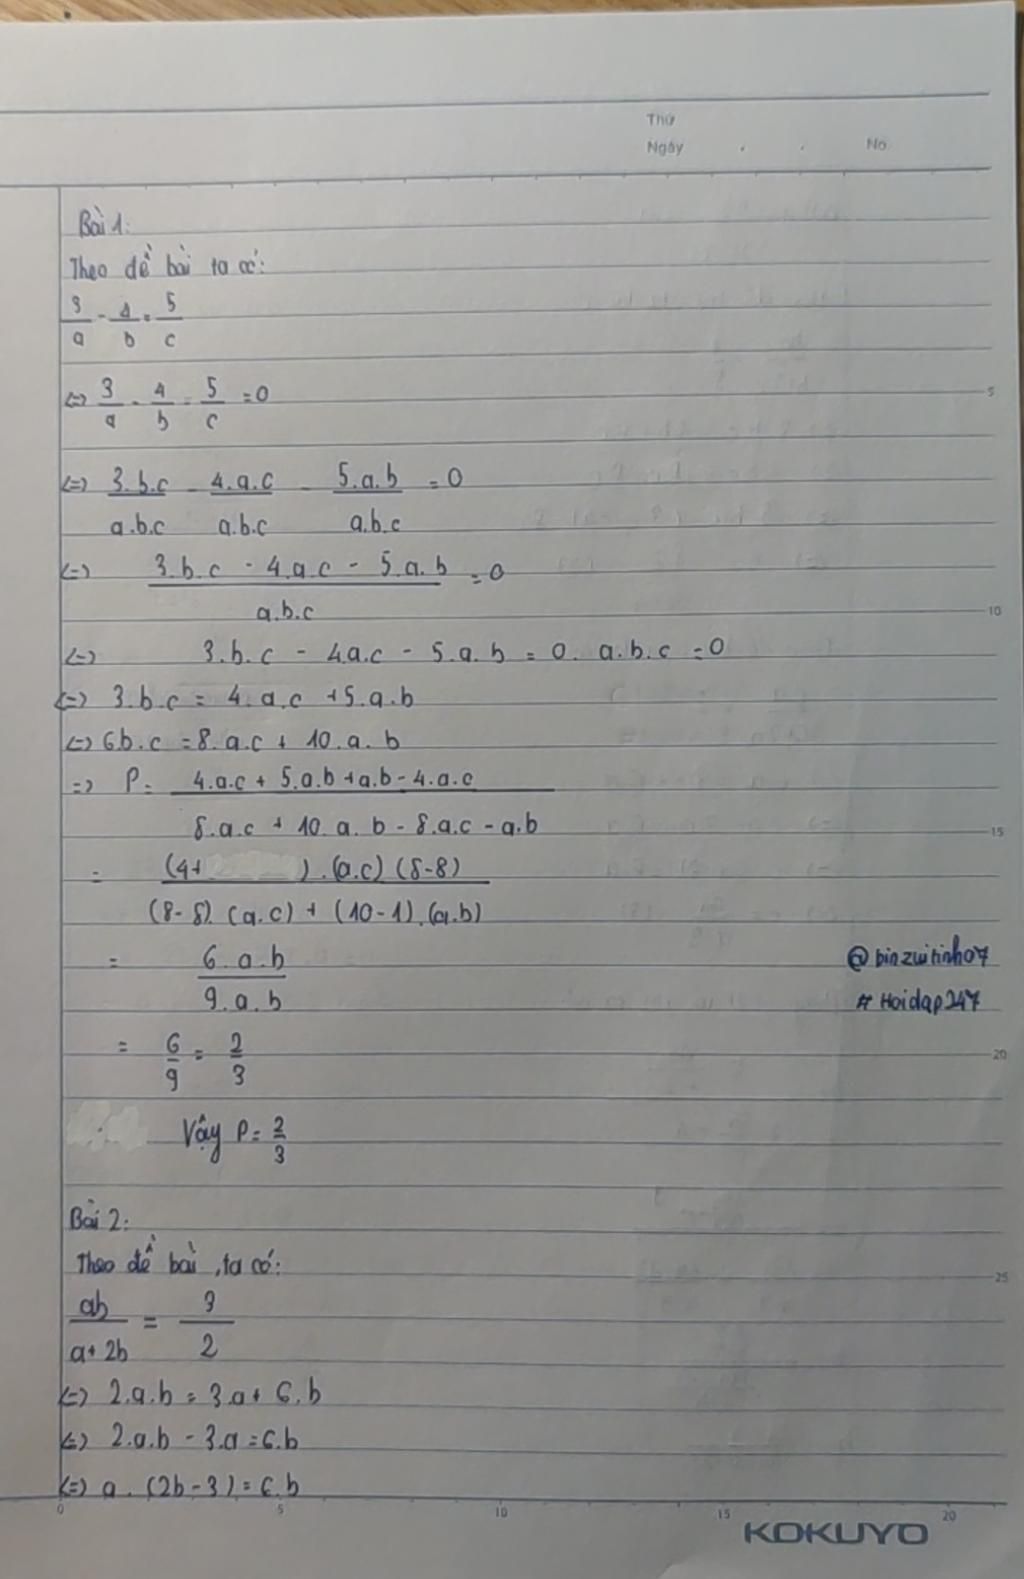 Thứ
Ngày . . No
Bài 1:
Theo đề bài ta có:
3/a - 4/b = 5/c
<=> 3/a - 4/b - 5/c = 0
<=> 3.b.c/a.b.c - 4.a.c/a.b.c - 5.a.b/a.b.c = 0
<=> 3.b.c - 4.a.c - 5.a.b/a.b.c = 0
<=> 3.b.c - 4.a.c - 5.a.b = 0. a.b.c = 0
<=> 3.b.c = 4.a.c + 5.a.b
<=> 6b.c = 8.a.c + 10.a.b
=> P = 4.a.c + 5.a.b + a.b - 4.a.c/8.a.c + 10.a.b - 8.a.c - a.b
= (4+ ).(a.c) (8-8)/(8-8).(a.c) + (10-1).(a.b)
= 6.a.b/9.a.b
@binzuitinh07
#Hoidap247
= 6/9 = 2/3
Vậy P = 2/3
Bài 2:
Theo đề bài, ta có:
ab/a+2b = 3/2
<=> 2.a.b = 3.a + 6.b
<=> 2.a.b - 3.a = 6.b
<=> a.(2b-3) = 6.b
5
10
15
20
25
0 5 10 15 20
KOKUYO